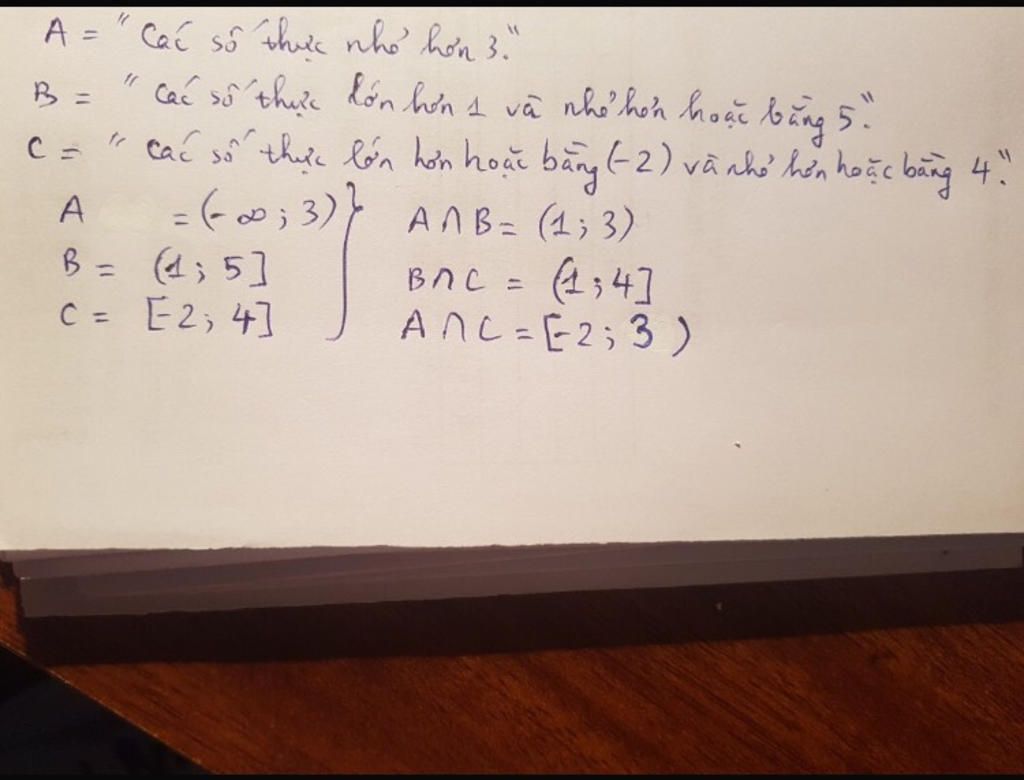 A = "Các số thực nhỏ hơn 3."
B = "Các số thực lớn hơn 1 và nhỏ hơn hoặc bằng 5."
C = "Các số thực lớn hơn hoặc bằng (-2) và nhỏ hơn hoặc bằng 4."
A = (-∞; 3) } A∩B = (1; 3)
B = (1; 5] B∩C = (1; 4]
C = [-2; 4] A∩C = [-2; 3)